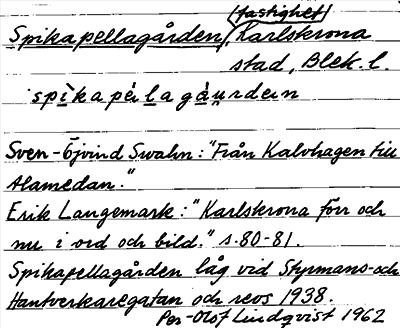 (fastighet)
Spikapellagården, Karlskrona
stad, Blek. l.
spìkapélagåụrdein
Sven-Öjvind Swahn: "Från Kalvhagen till
Alamedan."
Erik Langemark: "Karlskrona förr och
nu i ord och bild." s. 80-81.
Spikapellagården låg vid Styrmans- och
Hantverkaregatan och revs 1938.
Per-Olof Lindqvist 1962